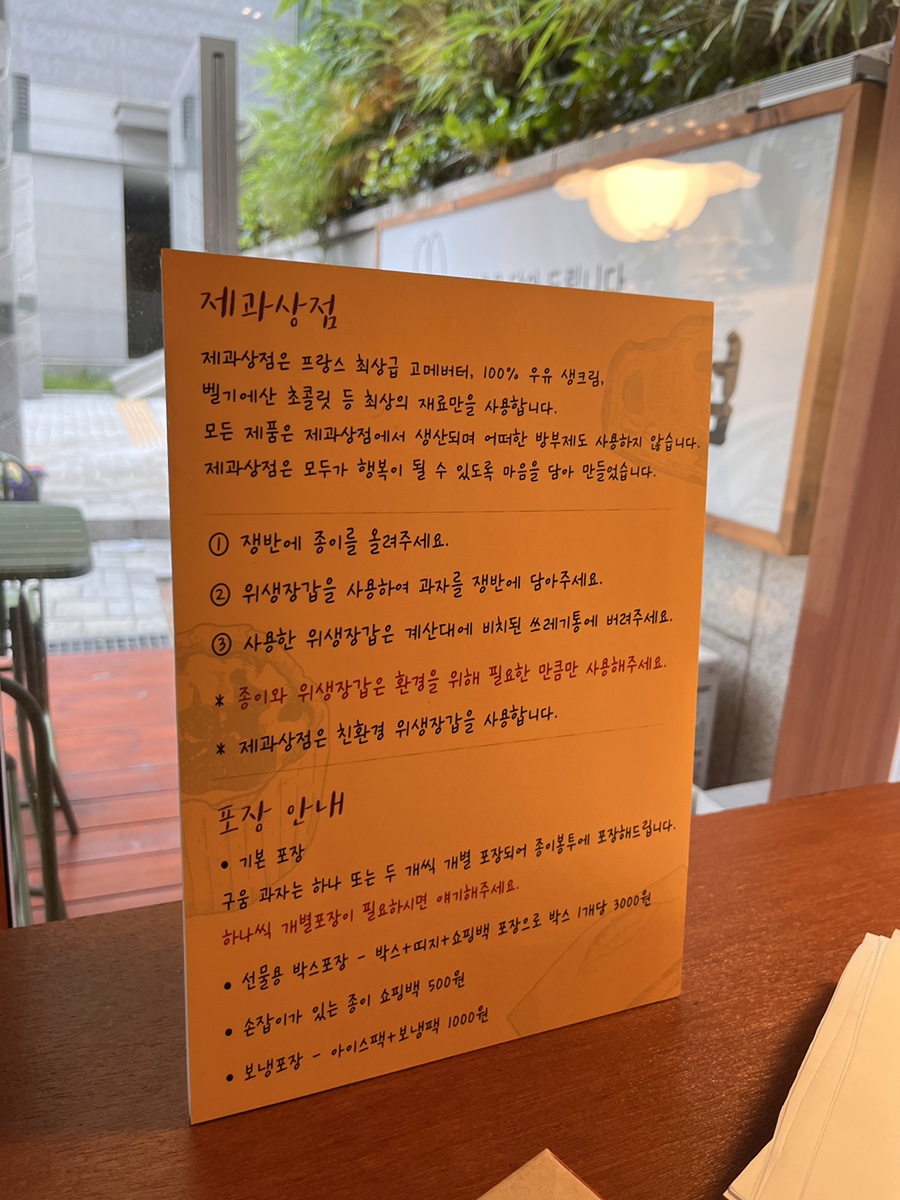 드립니다
제과상점
제과상점은 프랑스 최상급 고메버터, 100% 우유 생크림,
벨기에산 초콜릿 등 최상의 재료만을 사용합니다.
모든 제품은 제과상점에서 생산되며 어떠한 방부제도 사용하지 않습니다.
제과상점은 모두가 행복이 될 수 있도록 마음을 담아 만들었습니다.
① 쟁반에 종이를 올려주세요.
② 위생장갑을 사용하여 과자를 쟁반에 담아주세요.
③ 사용한 위생장갑은 계산대에 비치된 쓰레기통에 버려주세요.
* 종이와 위생장갑은 환경을 위해 필요한 만큼만 사용해주세요.
* 제과상점은 친환경 위생장갑을 사용합니다.
포장 안내
• 기본 포장
구움 과자는 하나 또는 두 개씩 개별 포장되어 종이봉투에 포장해드립니다.
하나씩 개별포장이 필요하시면 얘기해주세요.
• 선물용 박스포장 - 박스+띠지+쇼핑백 포장으로 박스 1개당 3000원
• 손잡이가 있는 종이 쇼핑백 500원
• 보냉포장 - 아이스팩+보냉팩 1000원